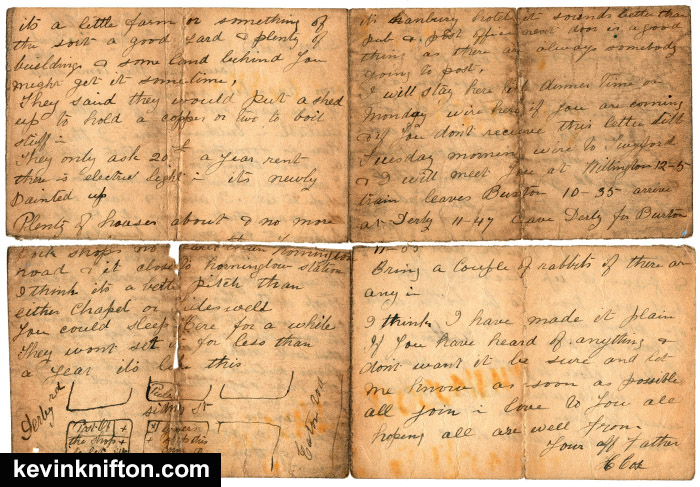 its a little farm or something of
the sort a good yard & plenty of
buildings & some land behind you
might get it sometime,
They said they would put a shed
up to hold a copper or two to boil
stuff in
They only ask 20£ a year rent
there is electric light in its newly
Painted up
Plenty of houses about & no more
Pork shops on
road & it close to Horninglow station
I think its a better pitch than
either Chapel or Tideswell
You could sleep here for a while
They wont set it for less than
a year its like this
Derby rd
Eaton Rd
the shop
its Hanbury hotel it sounds better than
Pub & post office next door is a good
thing as there are always somebody
going to post.
I will stay here till dinner time on
Monday wire here if you are coming
& if you dont receive this letter till
Tuesday morning wire to Twyford
& I will meet you at Willington 12-5
train leaves Buxton 10-35 arrive
at Derby 11-47 leave Derby for Burton
11-55
Bring a couple of rabbits if there are
any in
I think I have made it plain
If you have heard of anything &
dont want it be sure and let
me know as soon as possible
all join in love to you all
hoping all are well from
Your aff Father
C Cox
kevinknifton.com